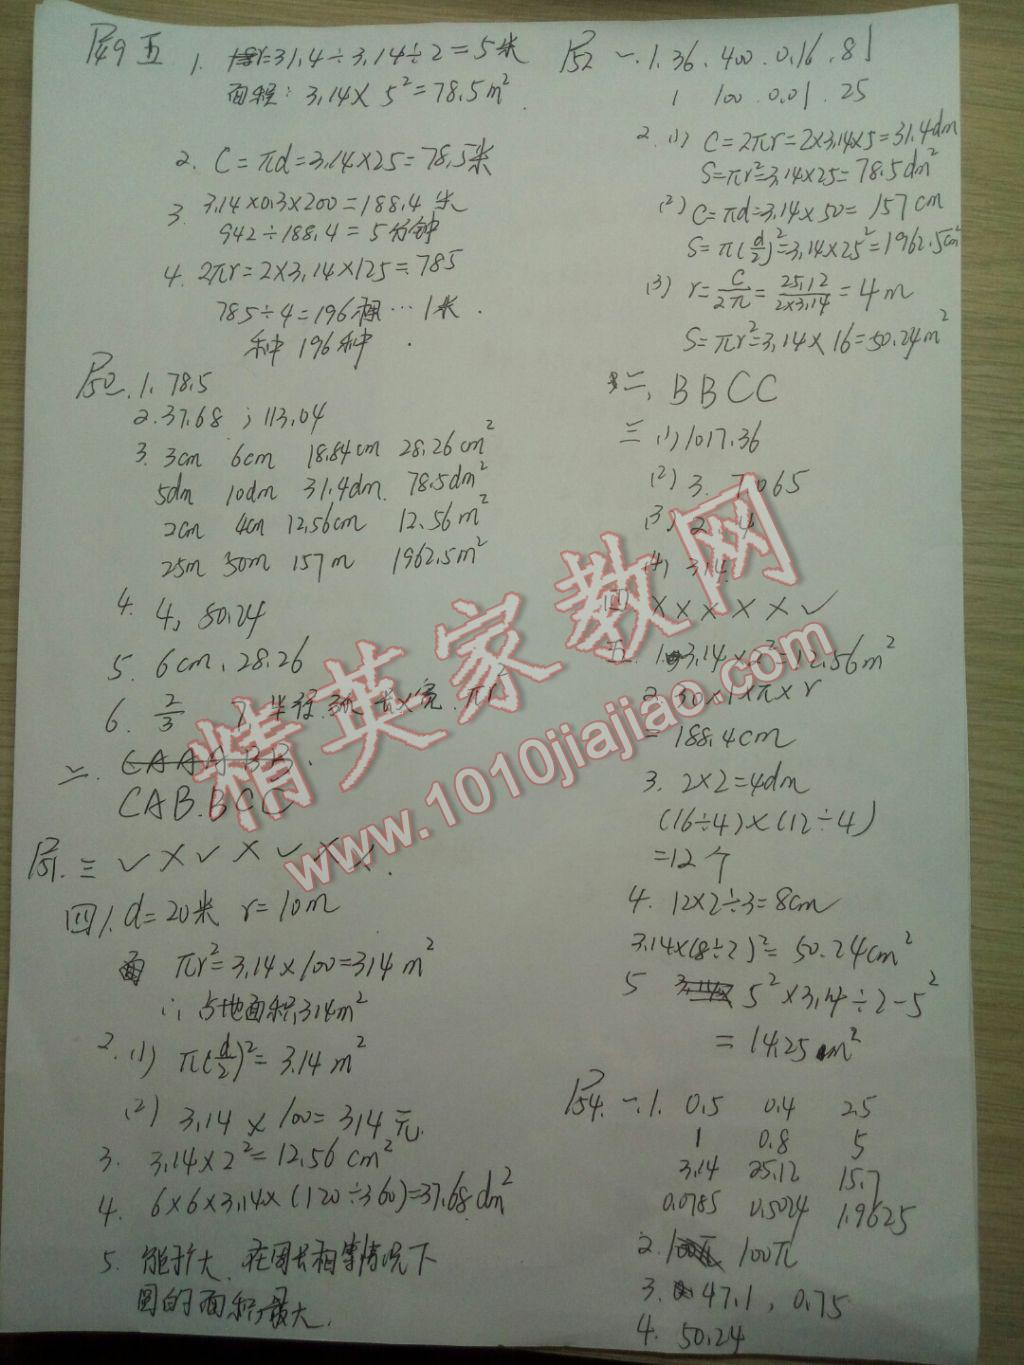 P49 五 1. r=31.4÷3.14÷2=5米
面积: 3.14×5²=78.5m²
2. C=πd=3.14×25=78.5米
3. 3.14×0.3×200=188.4米
942÷188.4=5分钟
4. 2πr=2×3.14×125=785
785÷4=196棵…1米.
种196种.
P50 一. 1. 78.5
2. 37.68 ; 113.04
3. 3cm 6cm 18.84cm 28.26cm²
5dm 10dm 31.4dm 78.5dm²
2cm 4cm 12.56cm 12.56m²
25m 50m 157m 1962.5m²
4. 4, 50.24
5. 6cm, 28.26
6. 2/3 7. 半径 长×宽 πr²
二. CAAABB.
CAB.BCC
P51. 三 ✓×✓×✓
四1. d=20米 r=10m
πr²=3.14×100=314m²
∴占地面积314m²
2. (1) π(d/2)²=3.14m²
(2) 3.14×100=314元.
3. 3.14×2²=12.56cm²
4. 6×6×3.14×(120÷360)=37.68dm²
5. 能扩大. 在周长相等情况下
圆的面积最大.
P52 一. 1. 36. 400. 0.16. 81
1 100. 0.01. 25
2. (1) C=2πr=2×3.14×5=31.4dm
S=πr²=3.14×25=78.5dm²
(2) C=πd=3.14×50=157cm
S=π(d/2)²=3.14×25²=1962.5cm²
(3) r=C/2π=25.12/2×3.14=4m
S=πr²=3.14×16=50.24m²
二、BBCC
三 (1) 1017.36
(2) 3. 7.065
(3)
(4) 314
四 ×××××✓
五. 1. 3.14×2²=12.56m²
2. 30×1×π×r
=188.4cm
3. 2×2=4dm
(16÷4)×(12÷4)
=12个
4. 12×2÷3=8cm
3.14×(8÷2)²=50.24cm²
5 5²×3.14÷2-5²
=14.25cm²
P54. 一. 1. 0.5 0.4 2.5
1 0.8 5
3.14 25.12 15.7
0.0785 0.5024 1.9625
2. 100π
3. 47.1, 0.75
4. 50.24
精英家教网
www.1010jiajiao.com